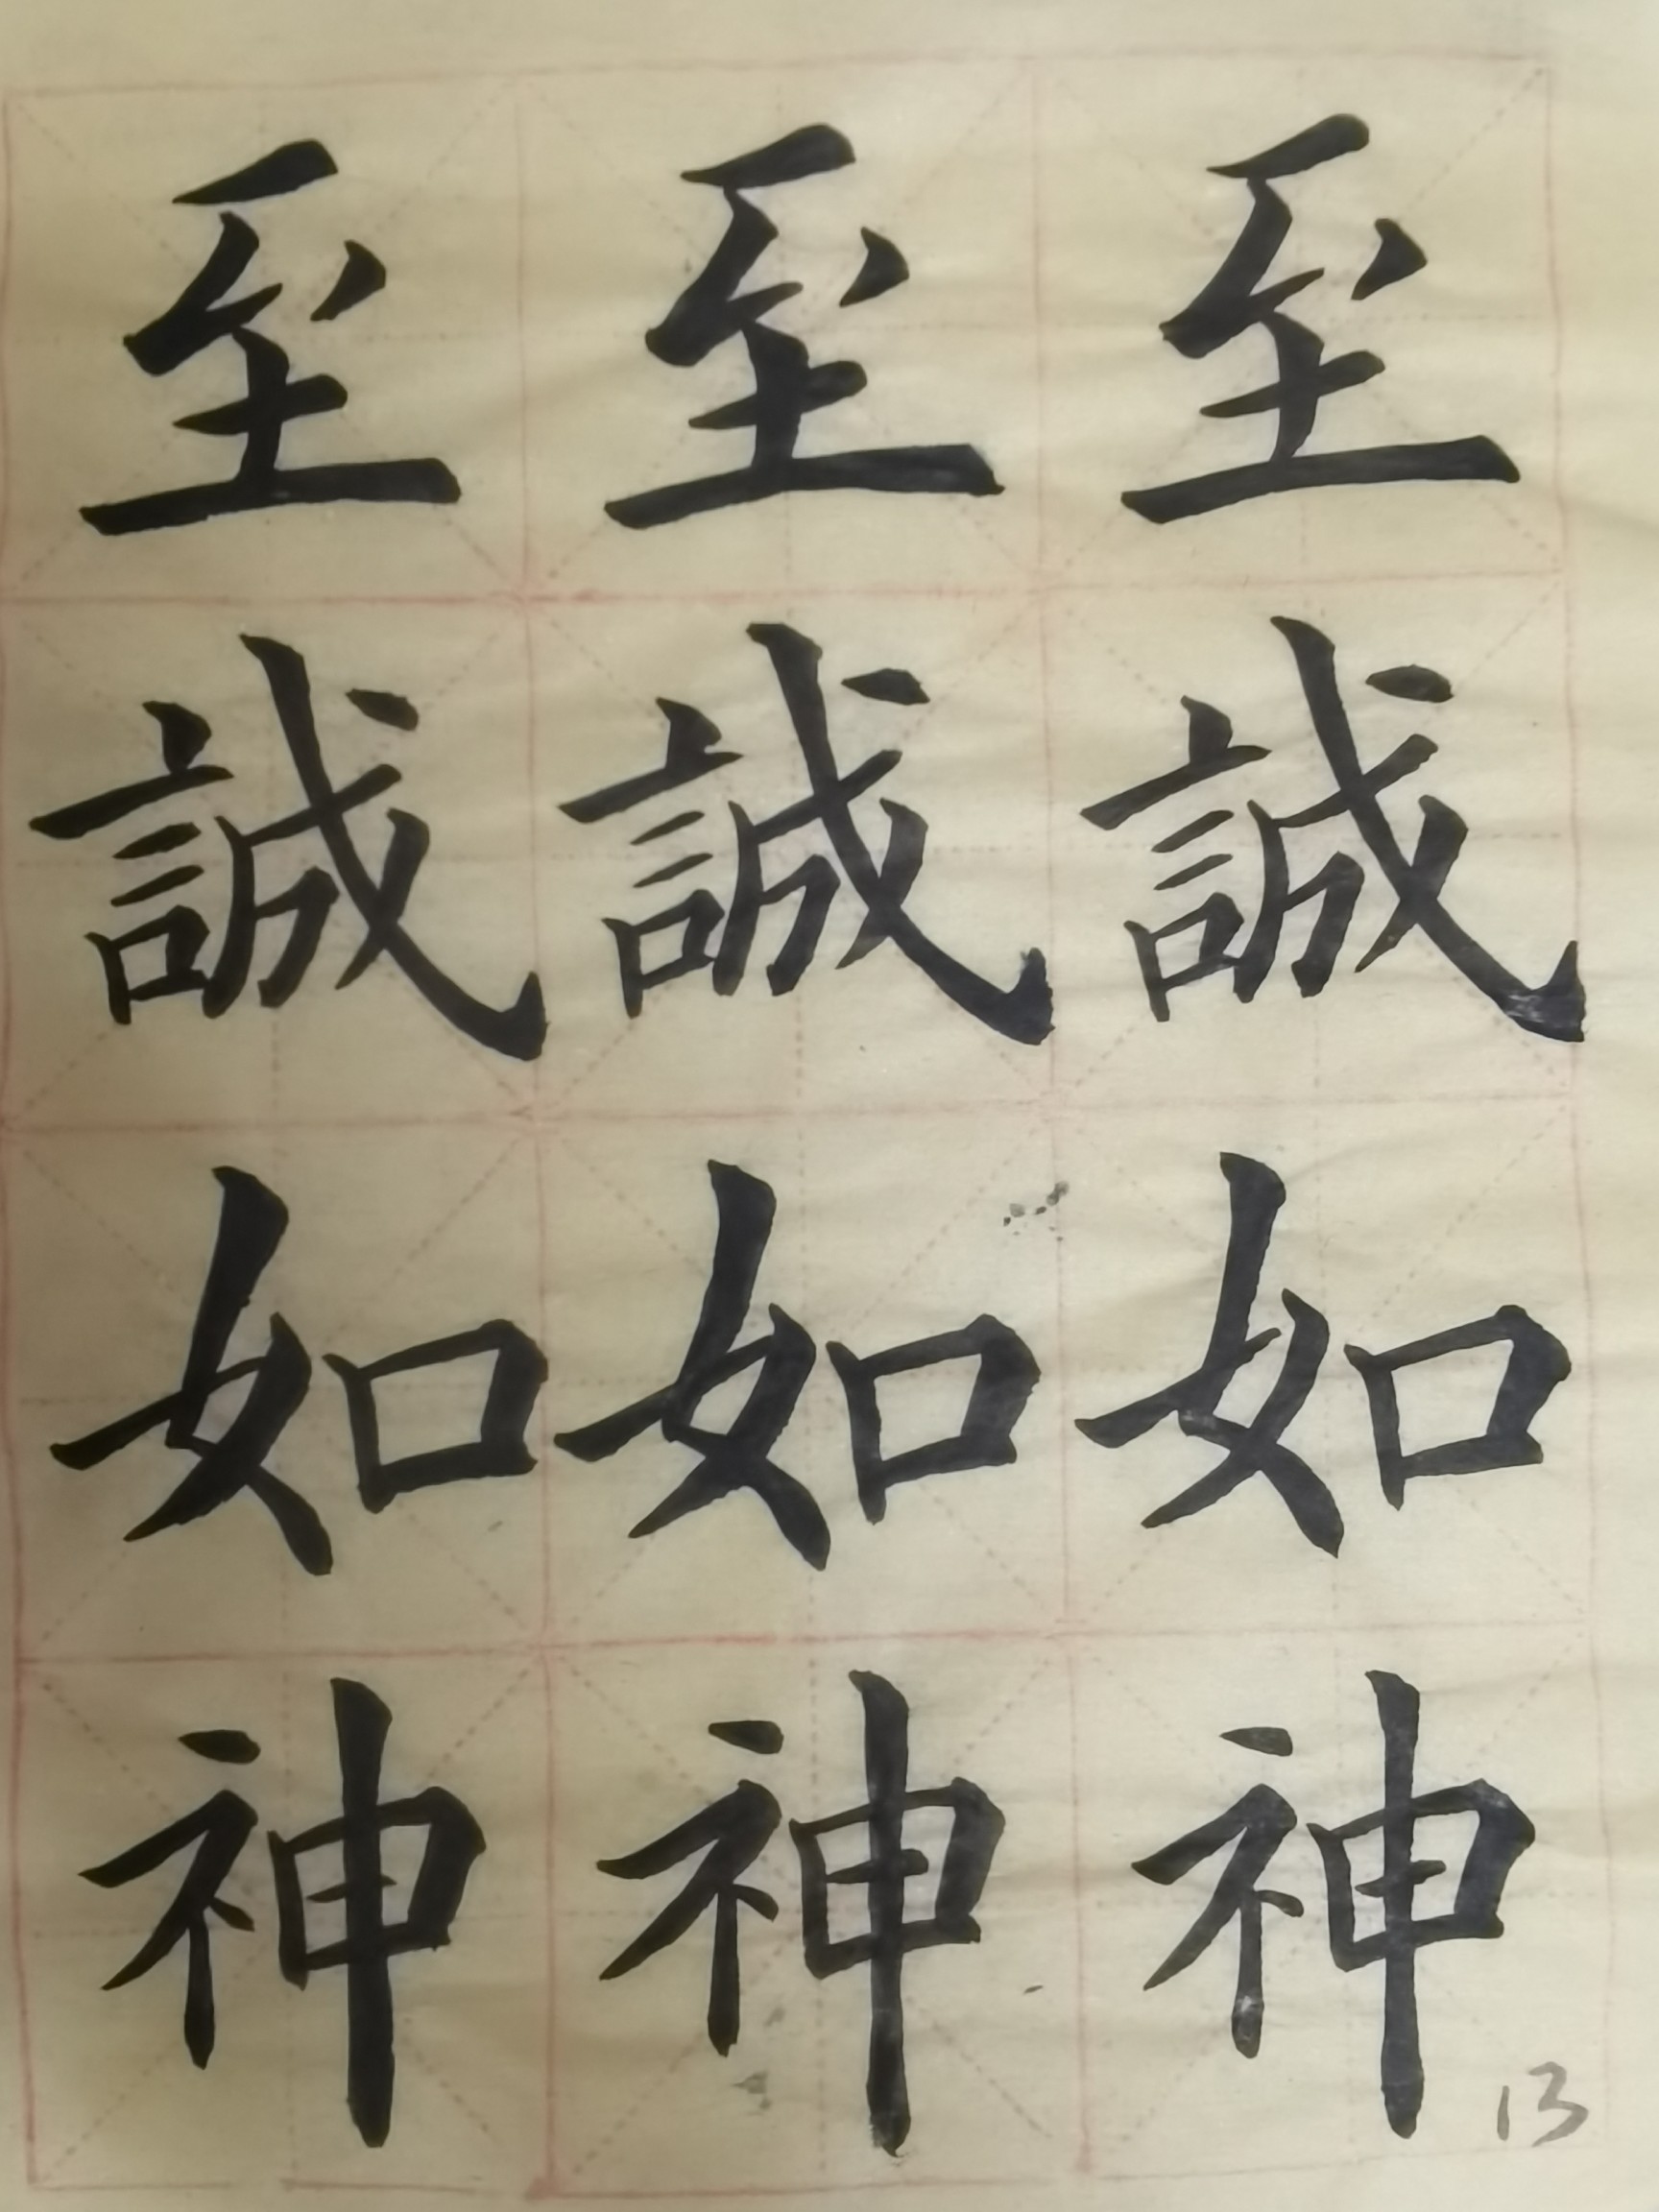 至至至
誠誠誠
如如如
神神神
13